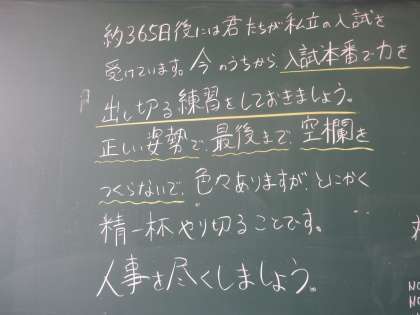 約365日後には君たちが私立の入試を
受けています。今のうちから、入試本番で力を
出し切る練習をしておきましょう。
正しい姿勢で、最後まで、空欄を
つくらないで、色々ありますが、とにかく
精一杯やり切ることです。
人事を尽くしましょう。
NO
NO